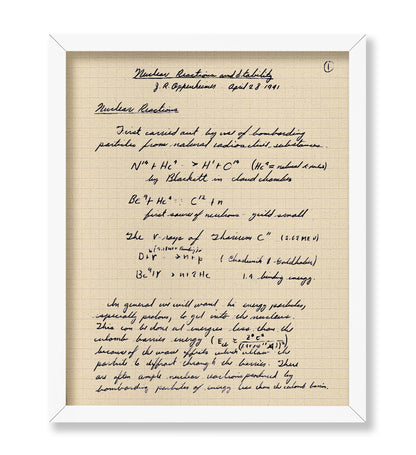 ①
Nuclear Reactions and Stability
J. R. Oppenheimer April 23 1941
Nuclear Reactions
First carried out by use of bombarding
particles from natural radioactive substances.
N¹⁴ + He⁴ → H¹ + O¹⁷ (He⁴ = natural α rays)
by Blackett in cloud chamber
Be⁹ + He⁴ → C¹² + n
first source of neutrons - yield small
The γ rays of Thorium C" (2.62 MEV)
D + γ → n + p (Chadwick & Goldhaber)
Be⁹ + γ → n + 2He 1.9 binding energy.
In general we will want hi energy particles,
especially protons, to get into the nucleus.
This can be done at energies less than the
coulomb barrier energy
because of the wave effects which allow the
particle to diffract through the barrier. There
are often ample nuclear reactions produced by
bombarding particles of energy less than the coulomb barrier.